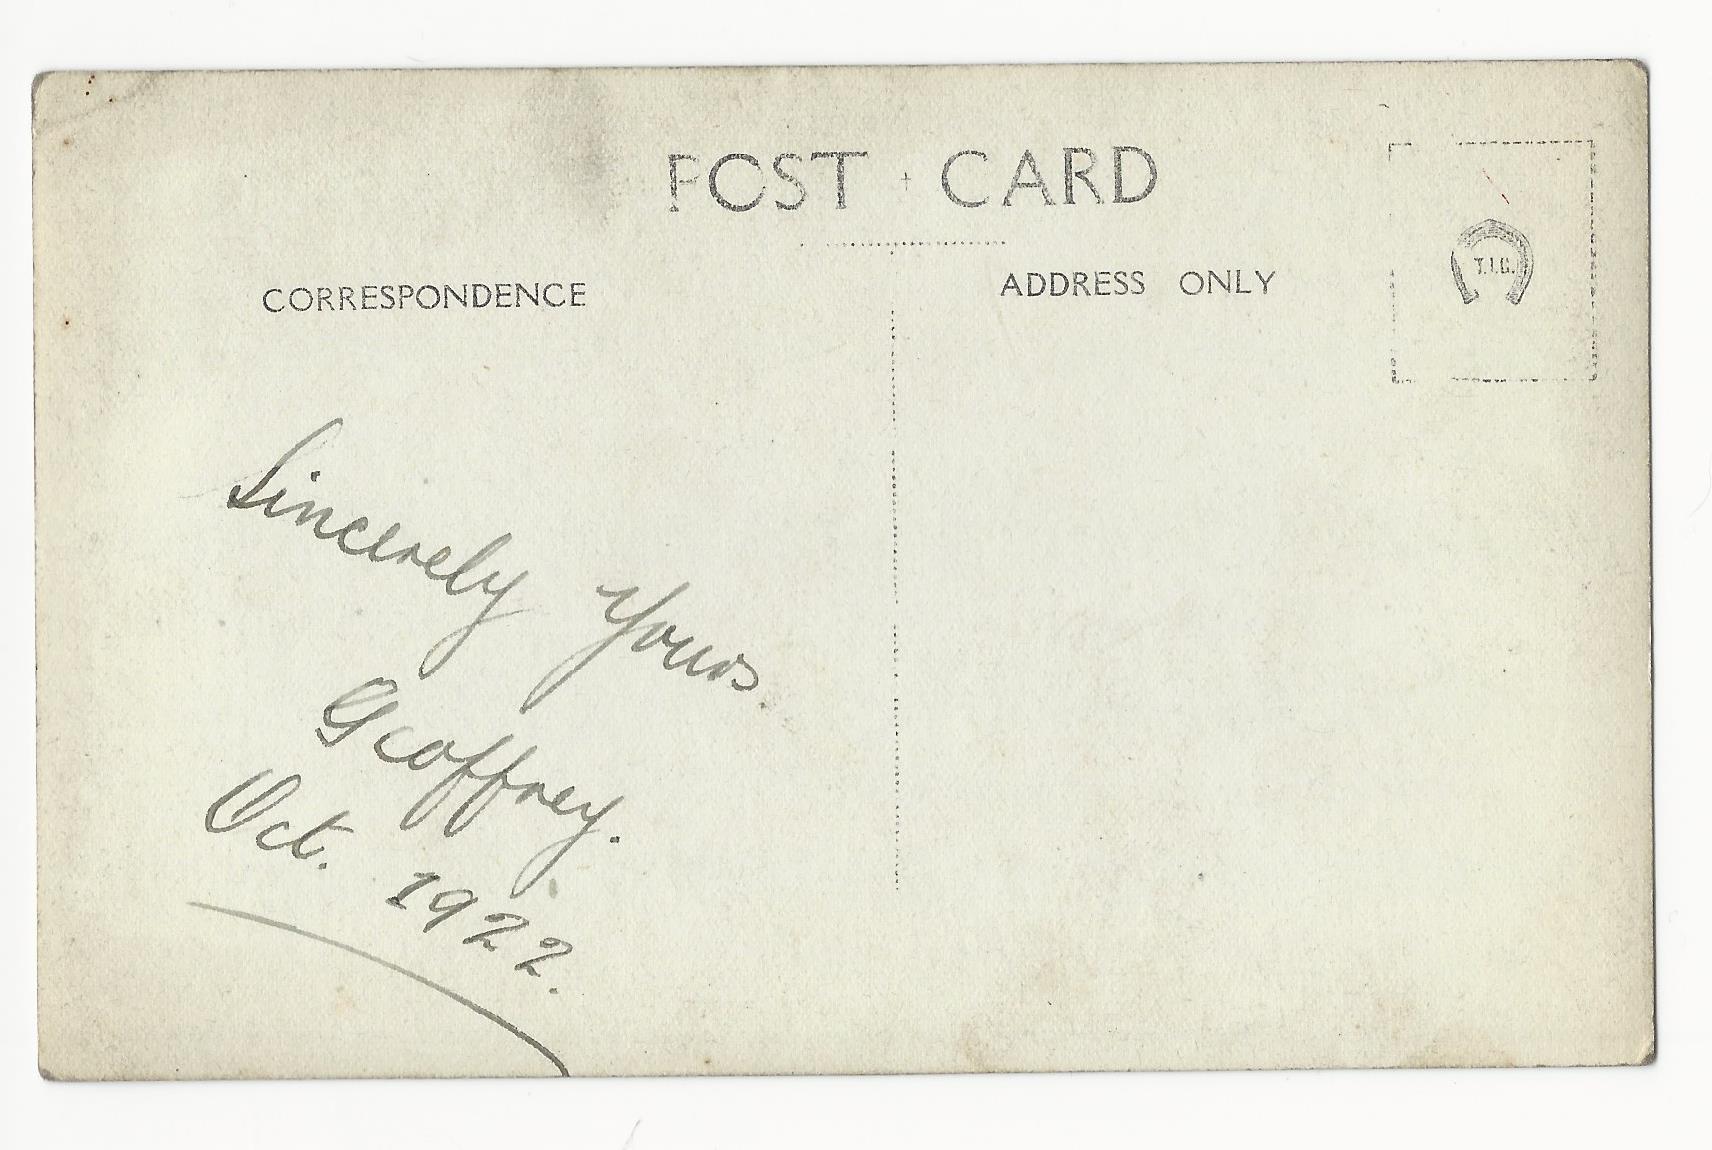 POST CARD
CORRESPONDENCE
ADDRESS ONLY
T.I.C.
Sincerely Yours
Geoffrey.
Oct. 1922.